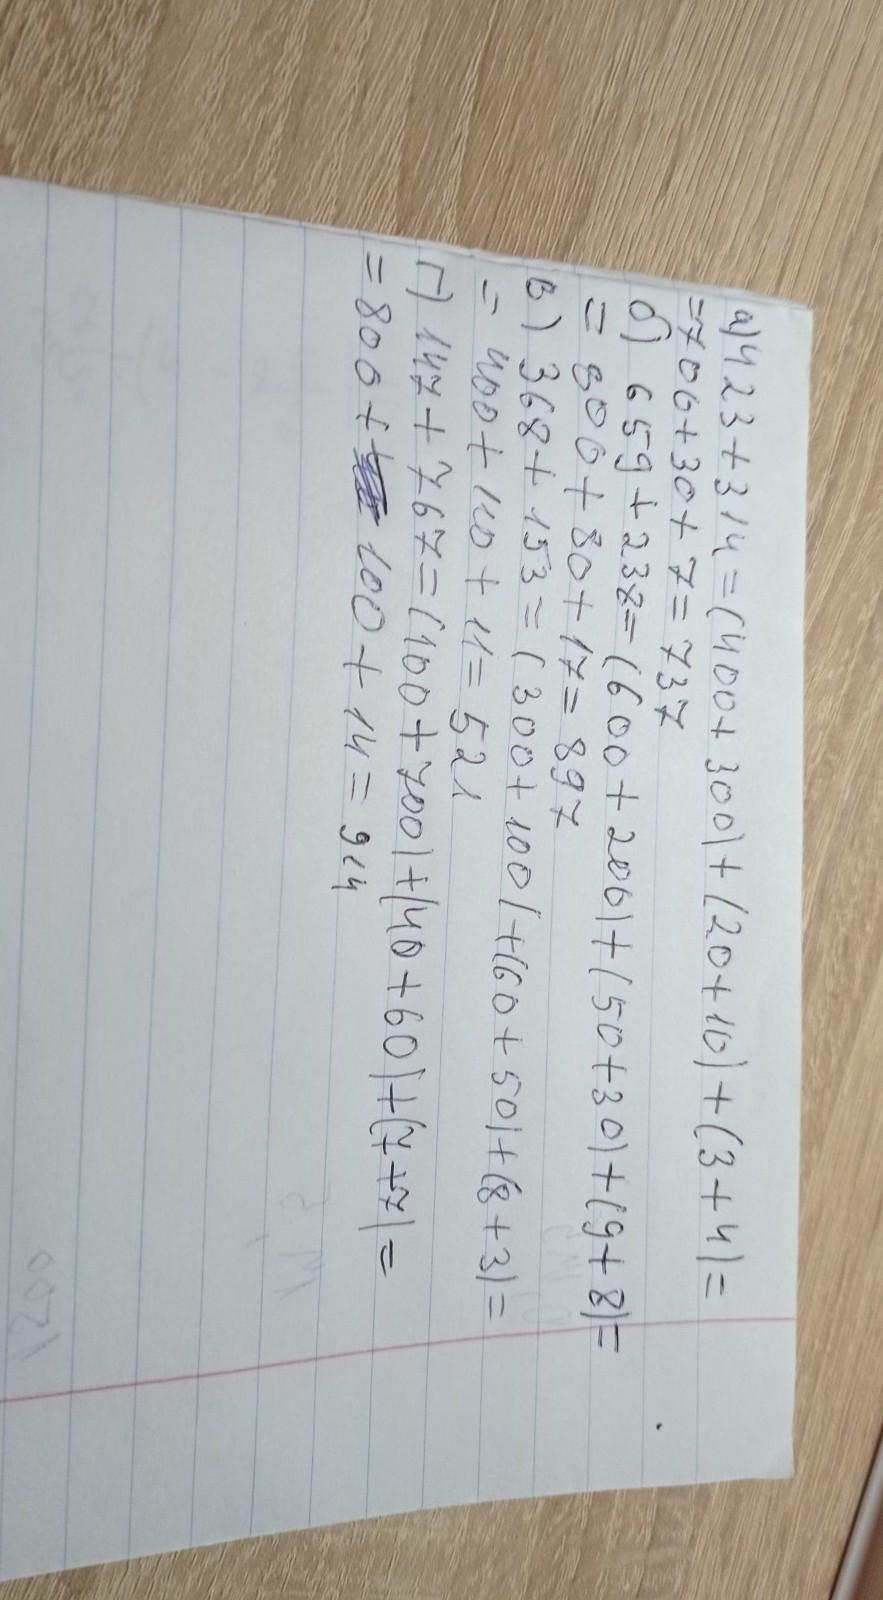 а) 423+314=(400+300)+(20+10)+(3+4)=
=700+30+7=737
б) 659+238=(600+200)+(50+30)+(9+8)=
=800+80+17=897
в) 368+153=(300+100)+(60+50)+(8+3)=
=400+110+11=521
г) 147+767=(100+700)+(40+60)+(7+7)=
=800+100+14=914